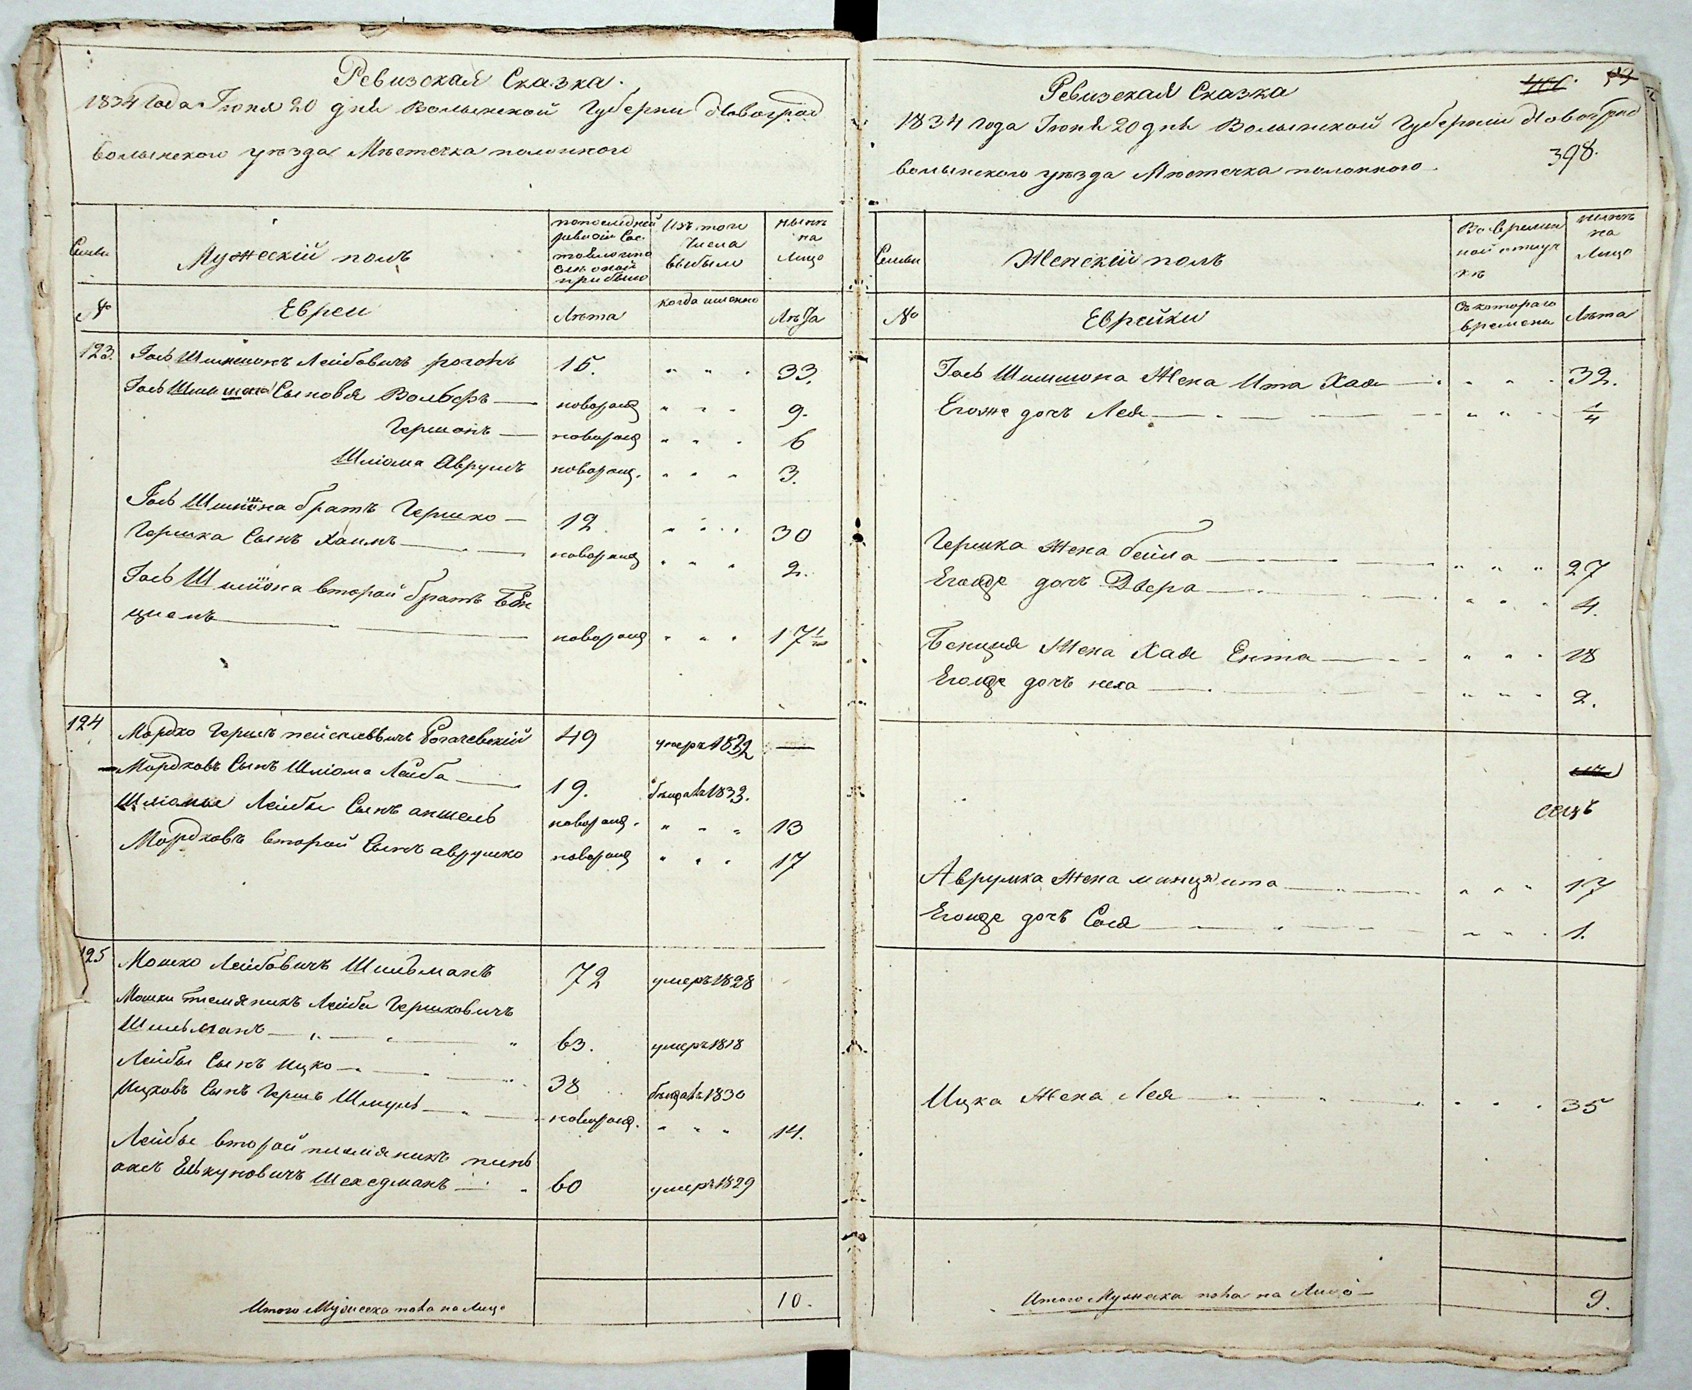 Ревизская Сказка.
1834 Года Июня 20 дня Волынской Губерни Новоград
волынского уезда Мѣстечка полонного
Семьи
Мужескій полъ
Изъ того
Числа
выбыло
нынѣ
на
Лицо
№
Евреи
Лѣта
когда именно
Лѣта
123. Іось Шимшонъ Лейбовичъ 15. 33.
Іось Шимшона Сыновя Вольфъ новорощ 9.
Гершонъ новорощ 6
Шліома Аврумъ новорощ. 3.
Іось Шимшона братъ Гершко 12. 30
Гершка Сынъ Хаимъ новорощ 2.
Іось Шимшона второй братъ Бен
ционъ новорощ 17 1/2
124 Мордко Гершъ Рогачевскій 49 умеръ 1832 —
Мордковъ Сынъ Шліома Лейба 19. 1833.
Шліомы Лейбы Сынъ аншель новорощ. 13
Мордковъ второй Сынъ аврумко новорощ 17
125 Мошко Лейбовичъ Шильманъ 72 умеръ 1828
Мошки племяникъ Лейба Гершковичъ
Шильманъ 63. умеръ 1818
Лейбы Сынъ Ицко 38 1830
Ицковъ Сынъ Гершъ Шмуль новорощ. 14.
Лейбы второй племяникъ
Шехедманъ 60 умеръ 1829
Итого Мужеска пола на Лицо 10.
Ревизская Сказка
1834 года Июня 20 дня Волынской Губерніи Новоград
398.
волынского уезда Мѣстечка полонного.
Семьи
Женскій полъ
Во времен
ной отлуч
кѣ
нынѣ
на
Лицо
№
Еврейки
Съ котораго
времени
Лѣта
Іось Шимшона Жена Ита Хая 32.
Егоже дочь Лея 1/4
Гершка Жена бейла 27
Егоже дочь Двера 4.
Бенция Жена Хая Ента 18
Егоже дочь неха 2.
Аврумка Жена ита 17
Егоже дочь Сося 1.
Ицка Жена Лея 35
Итого Мужеска пола на Лицо 9.